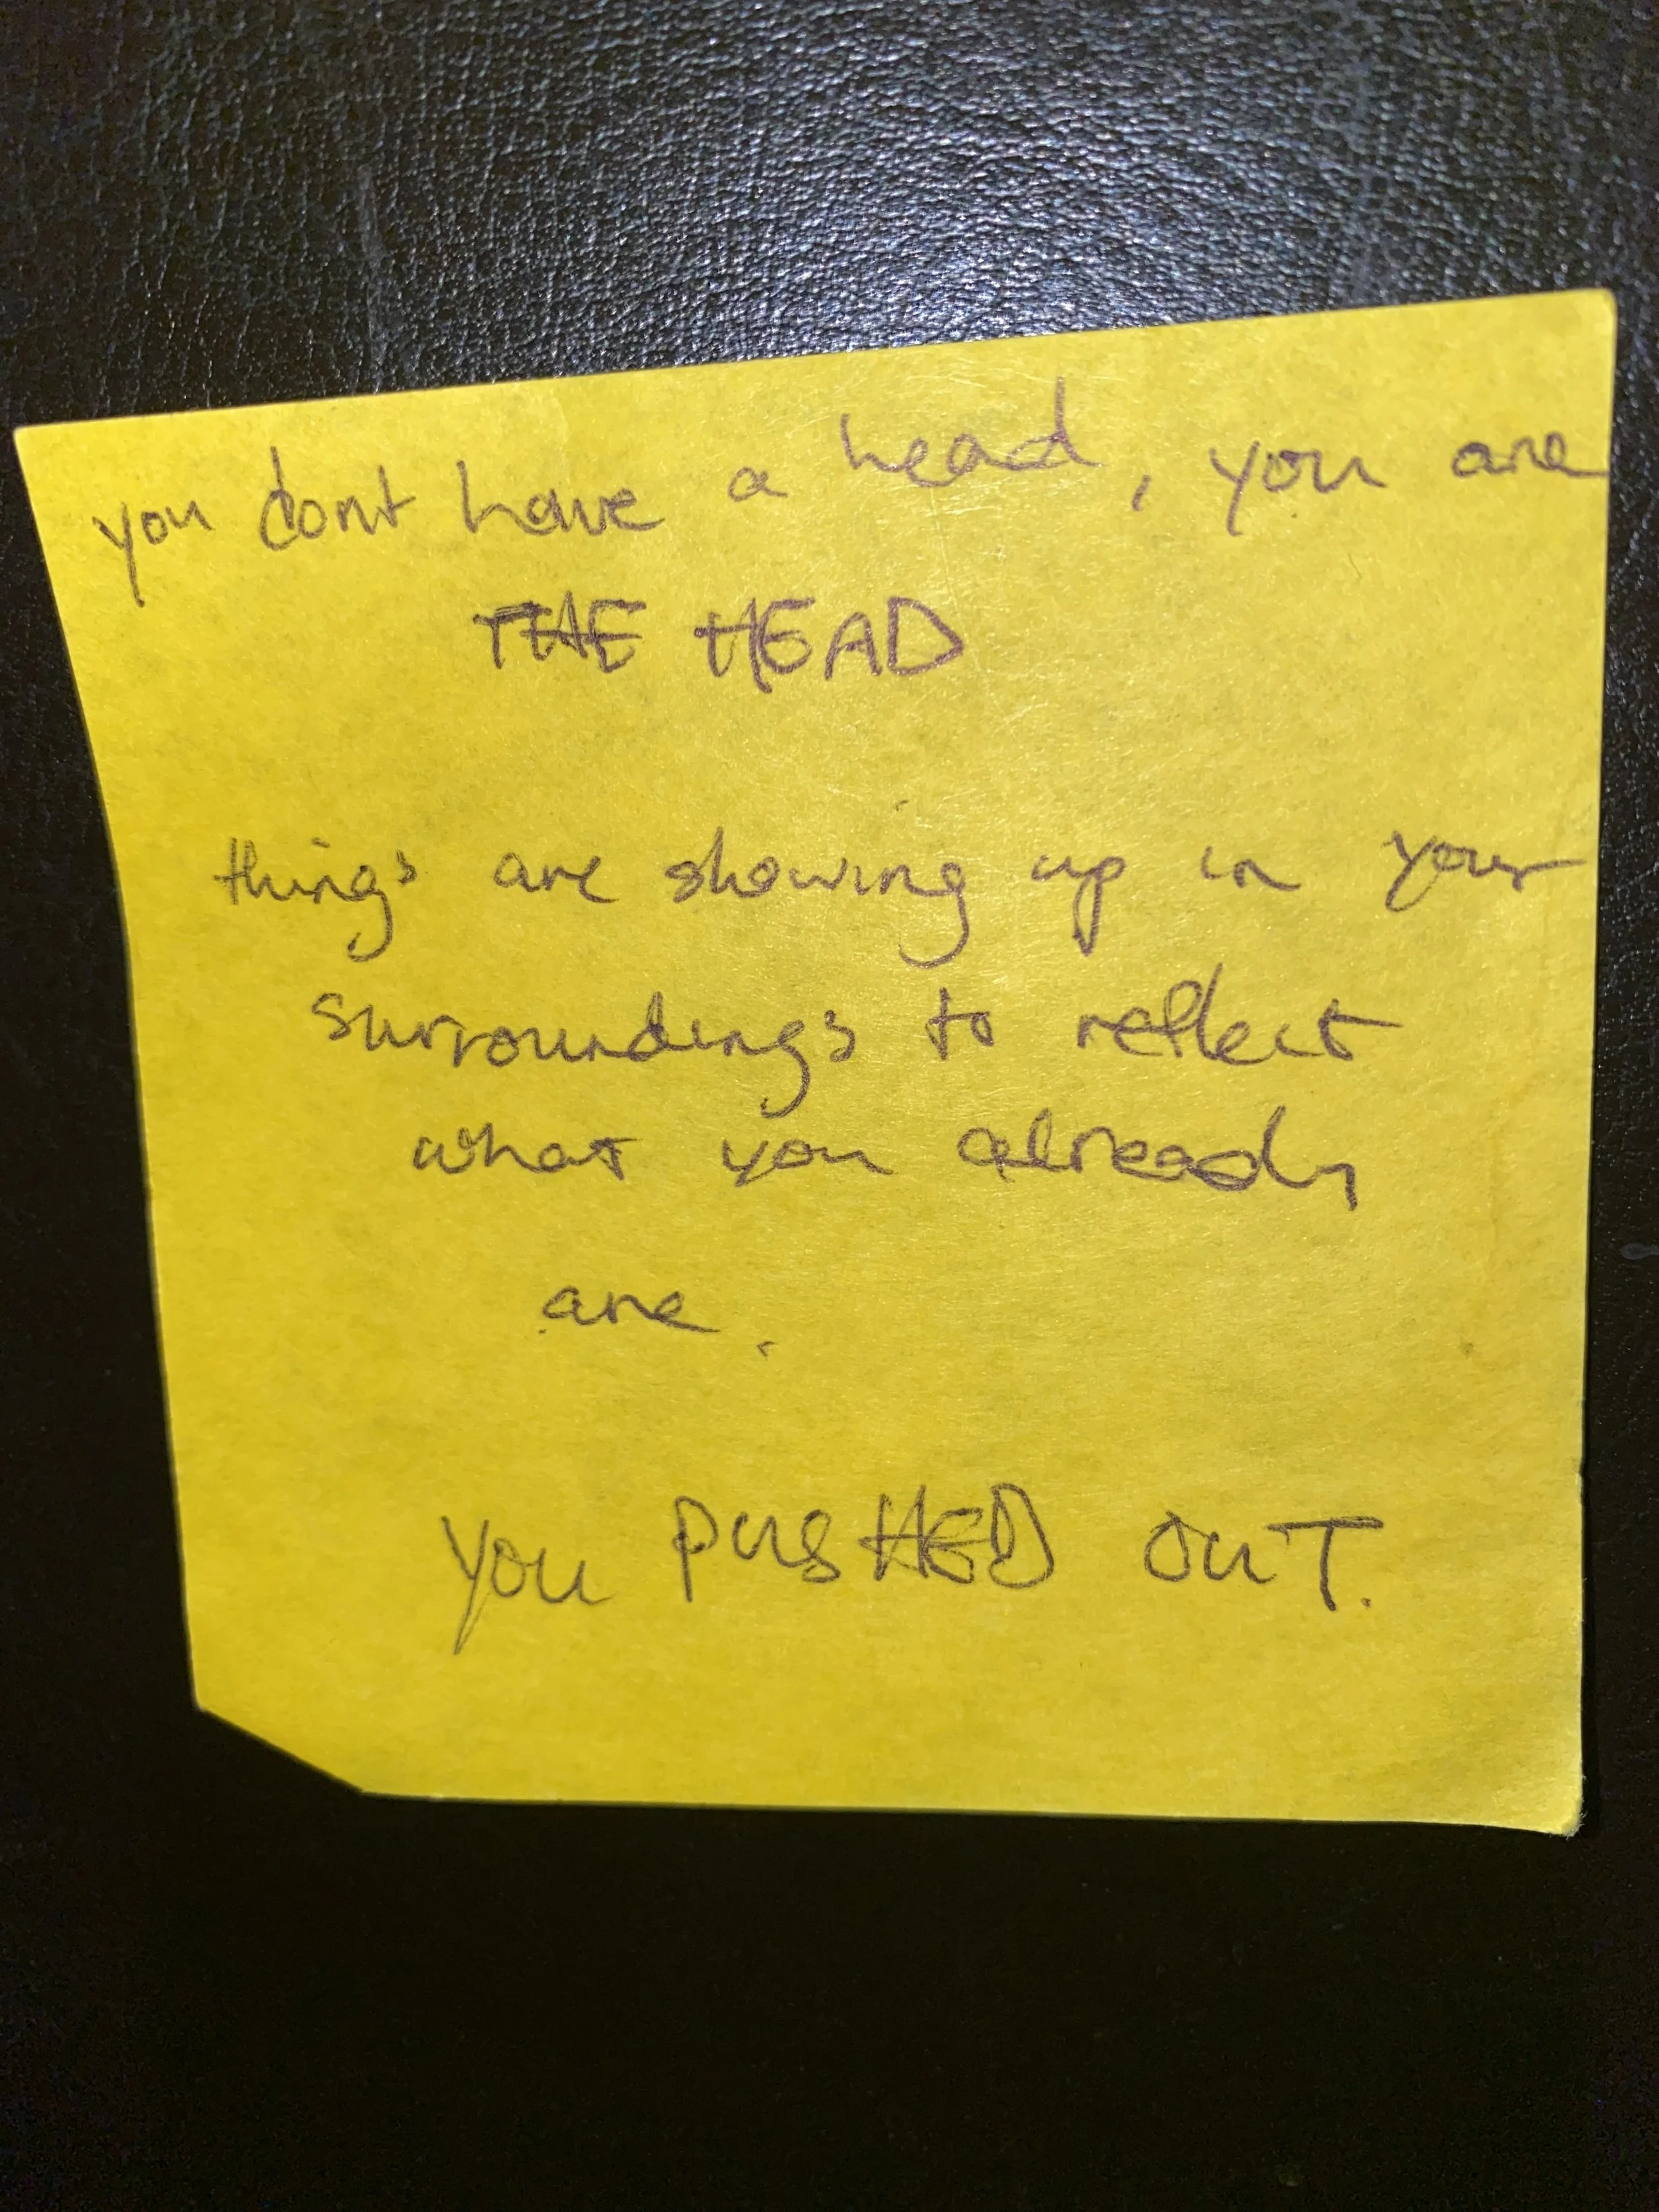 you dont have a head, you are
THE HEAD
things are showing up in your
surroundings to reflect
what you already
are.
You PUSHED OUT.